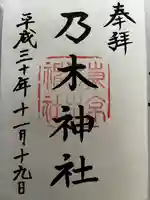 奉拝
乃木神社
平成三十年十一月十九日